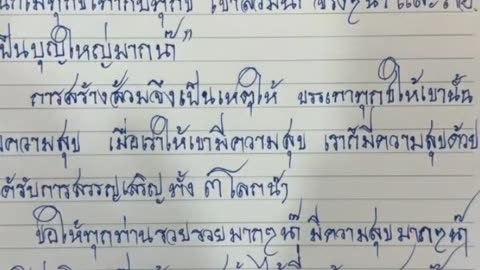 เป็นบุญใหญ่มากน๊า"
การสร้างส้วมจึงเป็นเหตุให้ บรรเทาทุกข์ให้เขานั้น
ความสุข เมื่อเราให้เขามีความสุข เราก็มีความสุขด้วย
ได้รับการสรรญเสริญทั้ง ๓ โลกน๊า
ขอให้ทุกท่านรวยรวยมากๆน๊า มีความสุขมากๆน๊า